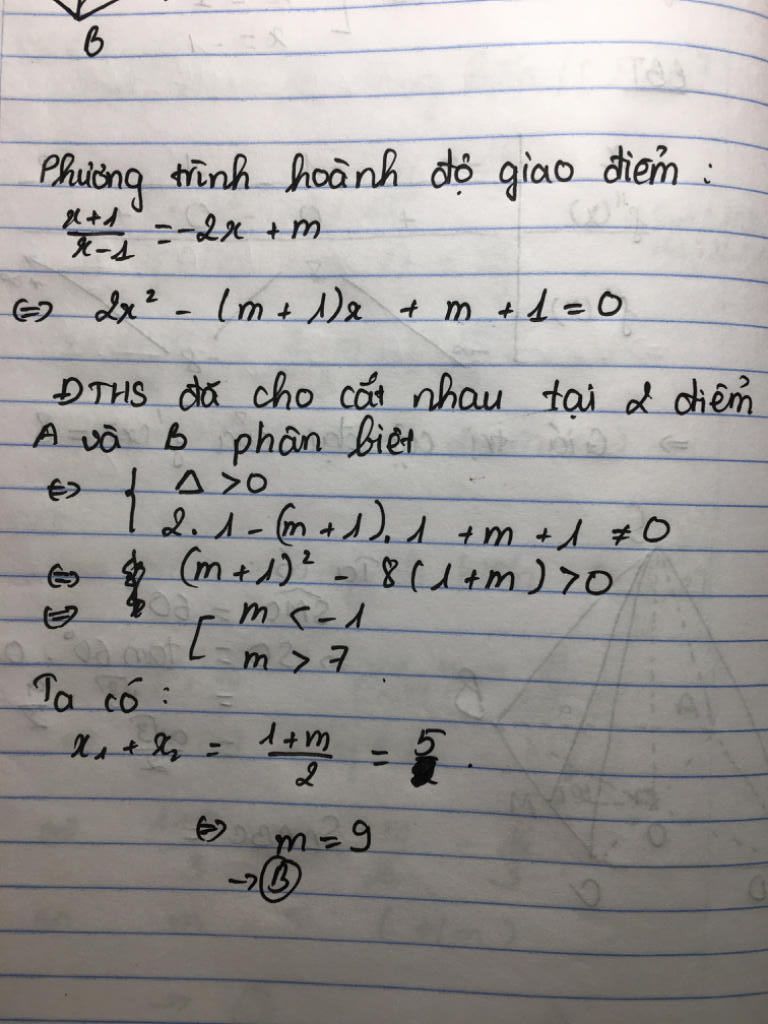 B
Phương trình hoành độ giao điểm :
x+1/x-1 = -2x + m
⇔ 2x² - (m + 1)x + m + 1 = 0
ĐTHS đã cho cắt nhau tại 2 điểm
A và B phân biệt
⇔ { Δ > 0
2. 1 - (m + 1). 1 + m + 1 ≠ 0
⇔ (m + 1)² - 8(1 + m) > 0
⇔ [ m < -1
m > 7
Ta có :
x₁ + x₂ = 1+m/2 = 5.
⇔ m = 9
→ B